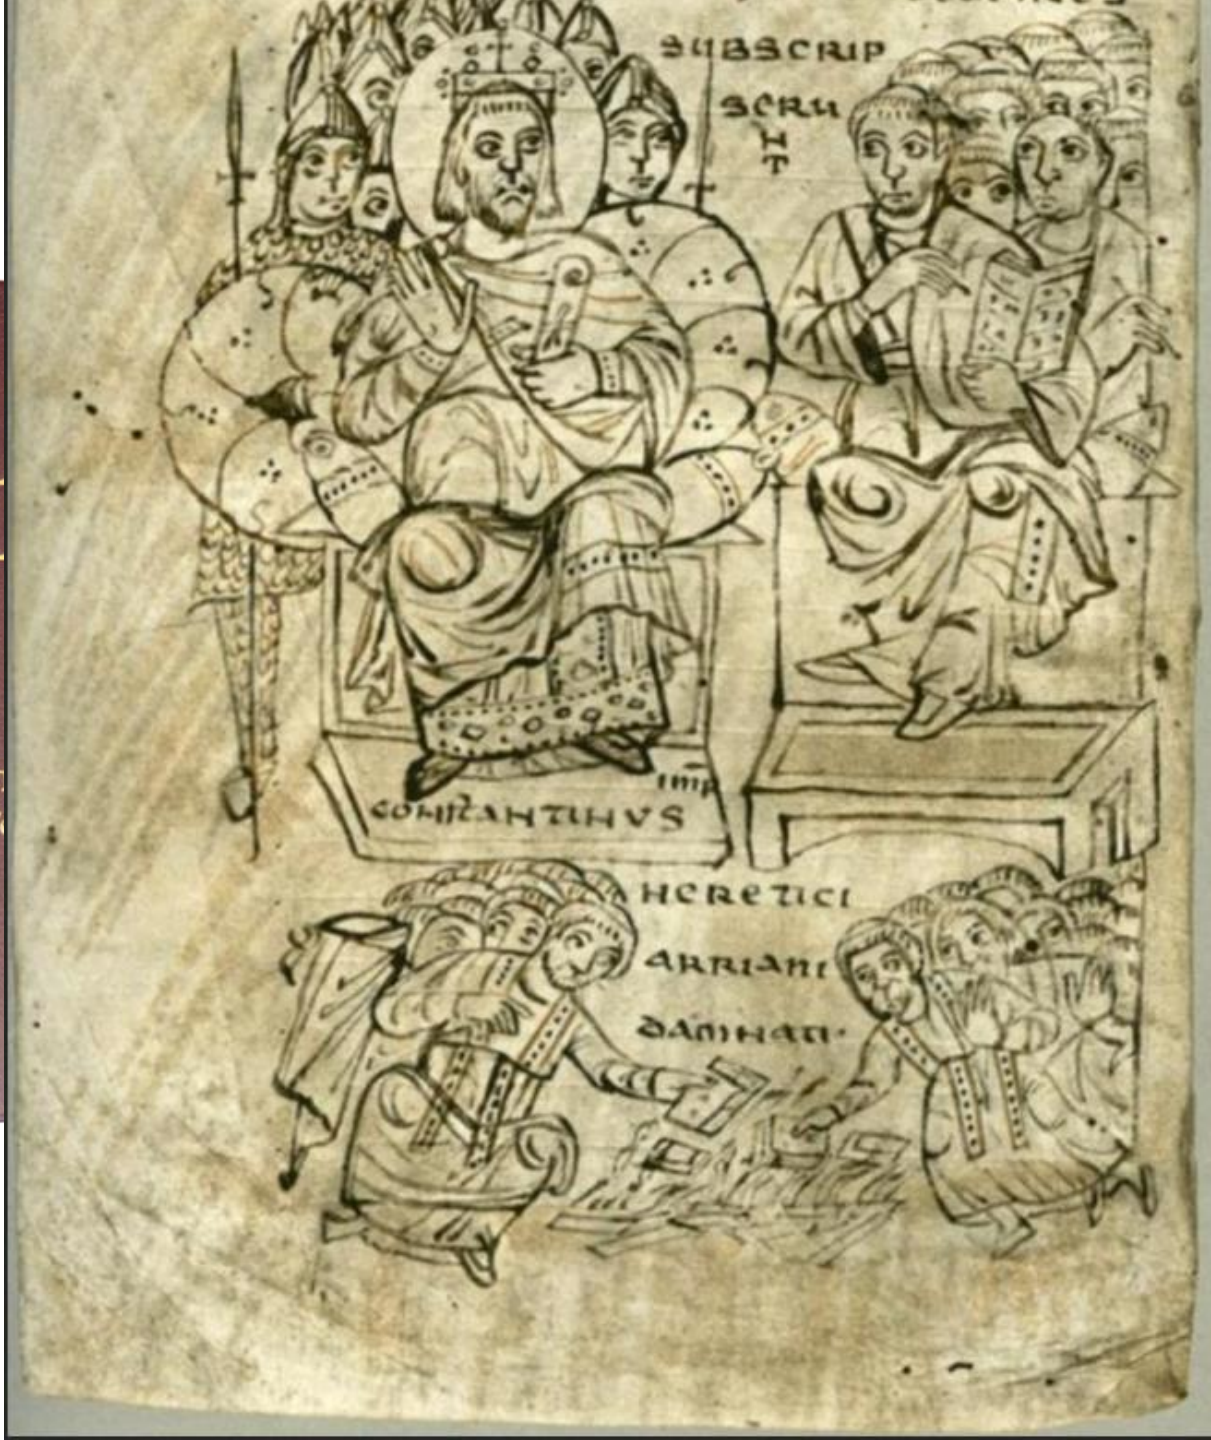 SUBSCRIP
SERU
N
T
IMP
CONSTANTINUS
HERETICI
ARRIANI
DAMNATI·